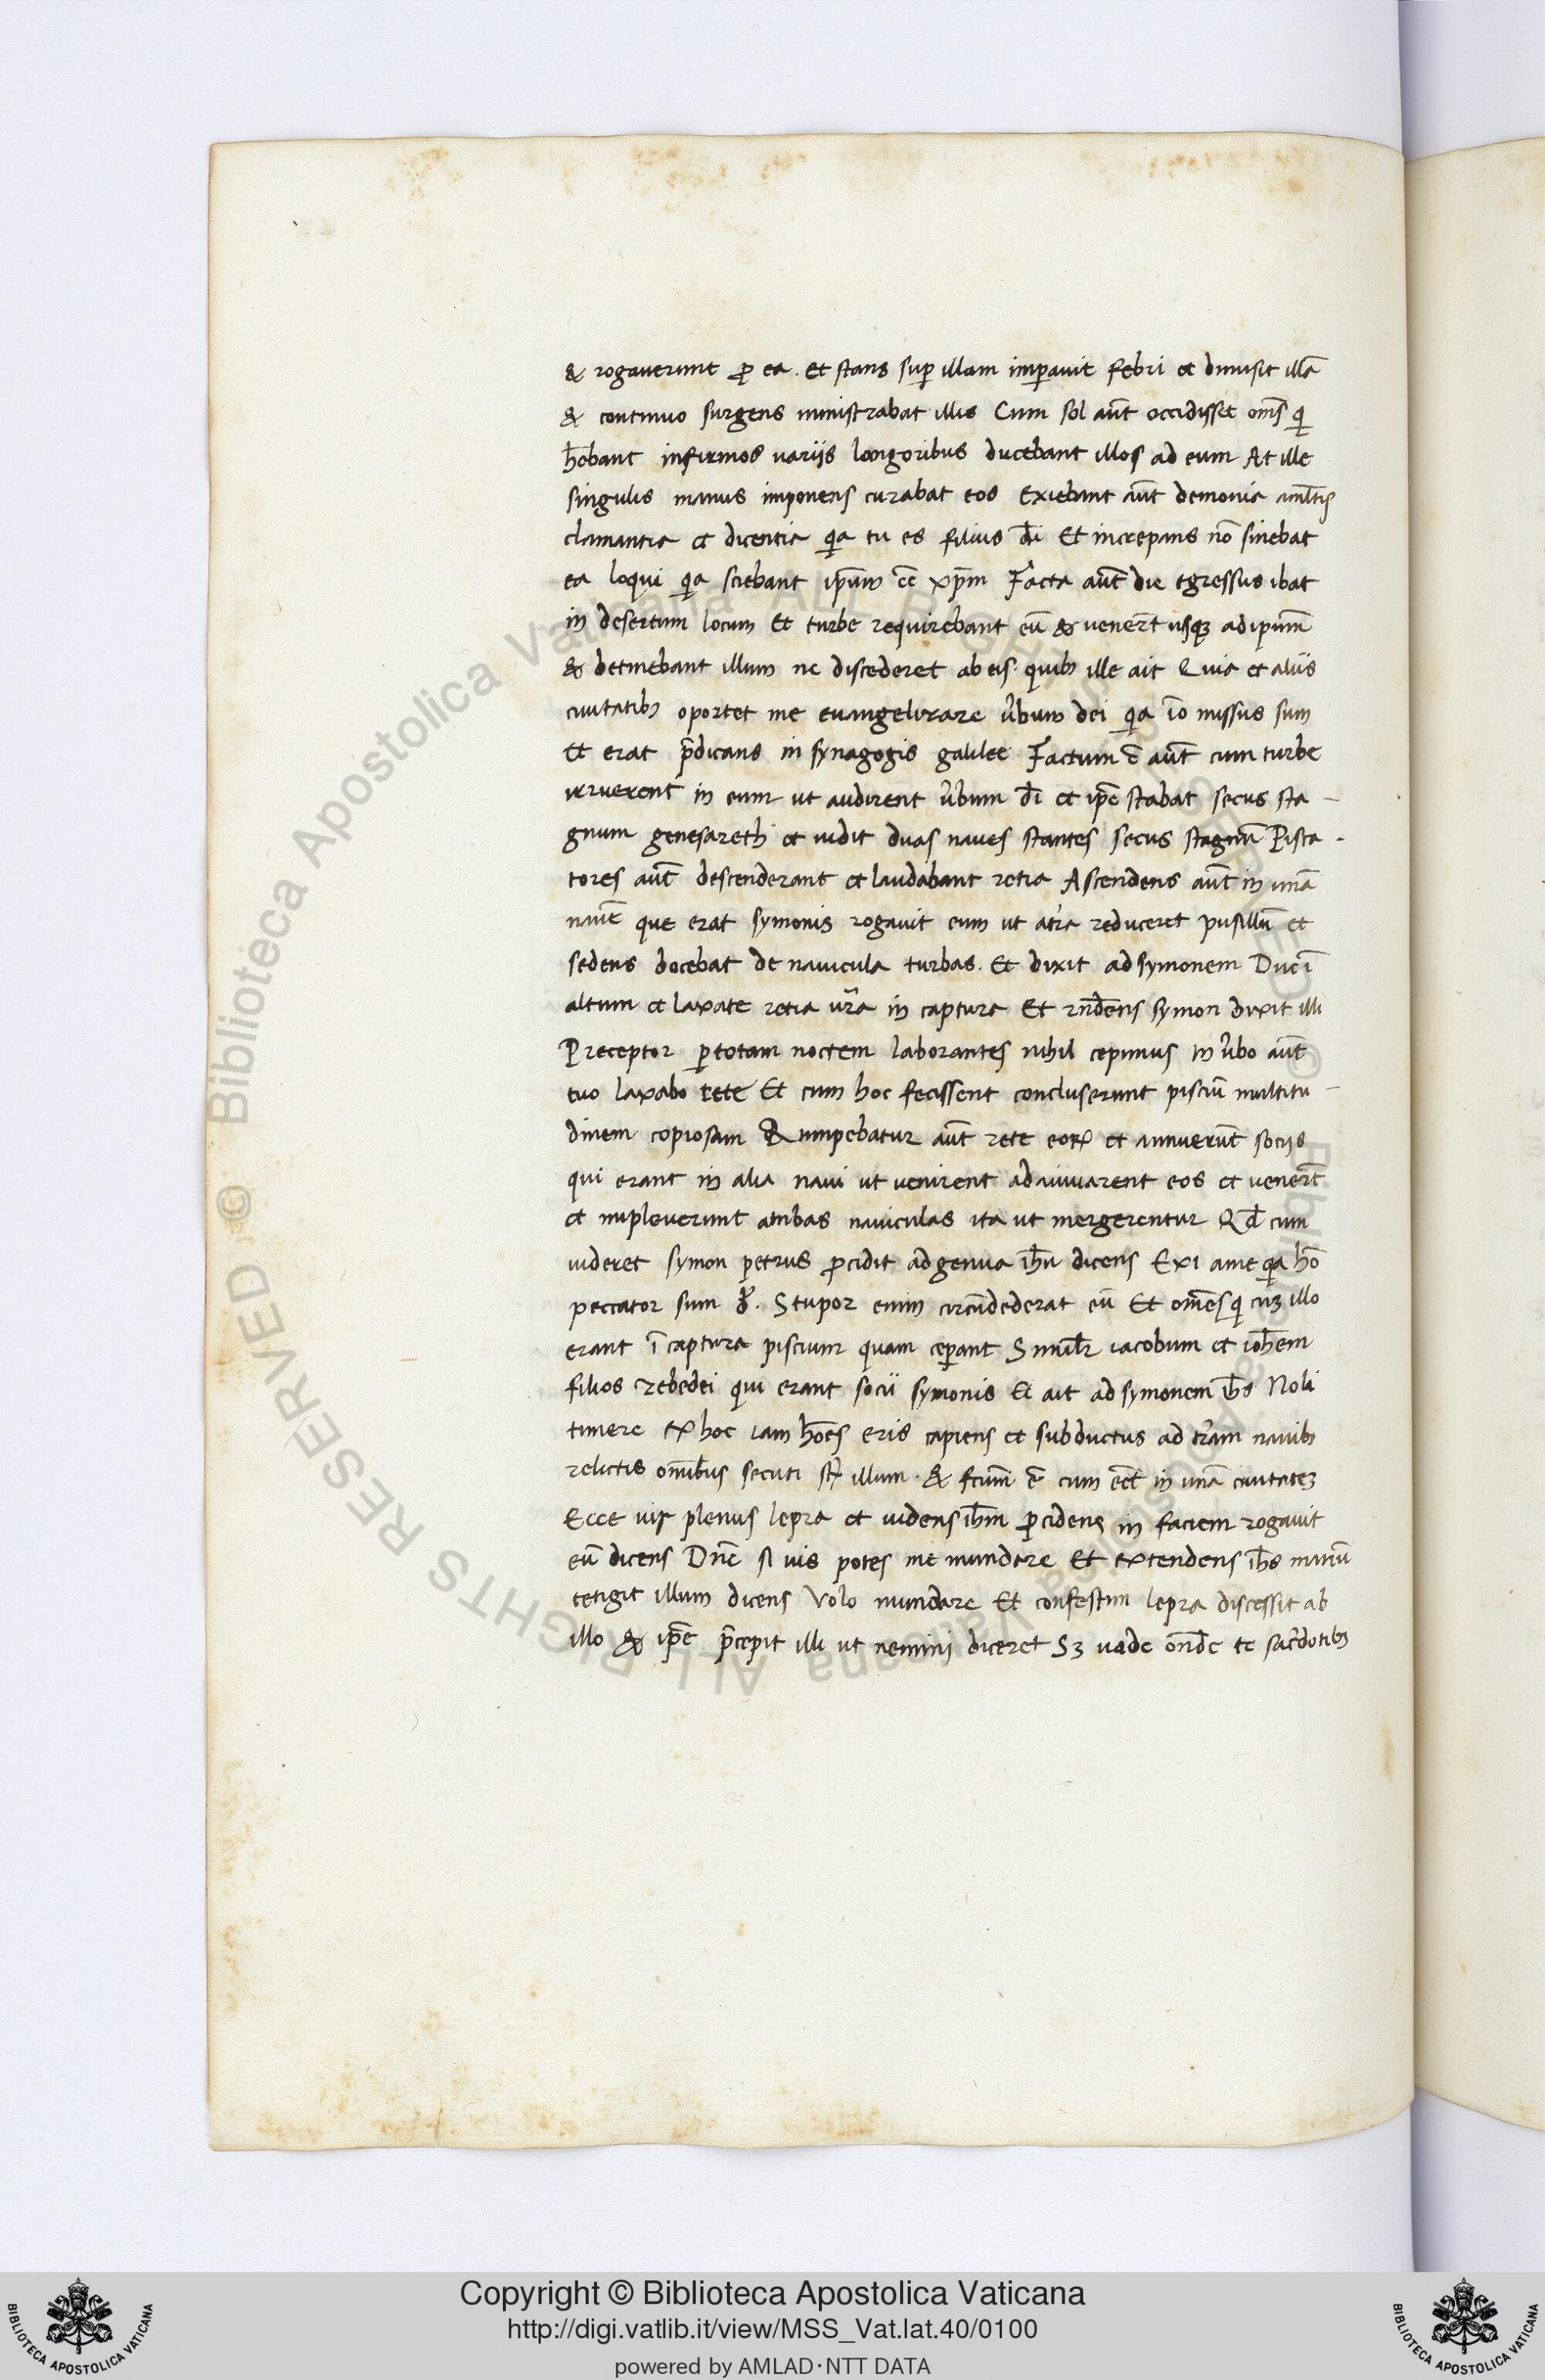 & rogauerunt ꝓ ea. et stans suꝑ illam imꝑauit febri et dimisit illā
& continuo surgens ministrabat illis Cum sol aūt occidisset om̄s qi
h̄ebant infirmos uariis langoribus ducebant illos ad eum At ille
singulis manus imponens curabat eos Exiebant aūt demonia a ml̄tis
clamantia et dicentia qia tu es filius d̄i Et increpans nō sinebat
ea loqui qia sciebant ip̄um eē xp̄m Facta aūt die egressus ibat
in desertum locum Et turbe requirebant eū & uener̄t usqꝫ ad ip̄um
& detinebant illum ne discederet ab eis. quibꝫ ille ait Quia et aliis
ciuitatibꝫ oportet me euangelizare ūbum dei qia īo missus sum
Et erat p̄dicans in synagogis galilee Factum ē aūt cum turbe
irruerent in eum ut audirent ūbum d̄i et ip̄e stabat secus sta-
gnum genesareth et uidit duas naues stantes secus stagnū Pisca-
tores aūt descenderant et laudabant retia Ascendens aūt in unā
nauē que erat symonis rogauit eum ut a tr̄a reduceret pusillū et
sedens docebat de nauicula turbas. Et dixit ad symonem Duc ī
altum et laxate retia ur̄a in captura Et rn̄dens symon dixit illi
Preceptor ꝑ totam noctem laborantes nihil cepimus in ūbo aūt
tuo laxabo rete Et cum hoc fecissent concluserunt pisciū multitu-
dinem copiosam Rumpebatur aūt rete eoꝝ et annuerūt sociis
qui erant in alia naui ut uenirent adiuuarent eos et uener̄t
et impleuerunt ambas nauiculas ita ut mergerentur Qd̄ cum
uideret symon petrus ꝓcidit ad genua ih̄u dicens Exi a me qia hō
peccator sum . Stupor enim circūdederat eū Et om̄es qi cuꝫ illo
erant ī captura piscium quam ceꝑant Simil̄r iacobum et ioh̄em
filios zebedei qui erant socii symonis Et ait ad symonem ih̄s Noli
timere ex hoc iam hōes eris capiens et subductus ad tr̄am nauibꝫ
relictis omībus secuti st̄ illum. & fc̄um ē cum eēt in unā ciuitateꝫ
Ecce uir plenus lepra et uidens ih̄m ꝓcidens in faciem rogauit
eū dicens Dn̄e si uis potes me mundare Et extendens ih̄s manū
tetigit illum dicens Volo mundare Et confestim lepra discessit ab
illo & ip̄e p̄cepit illi ut nemini diceret Sꝫ uade on̄de te sac̄dotibꝫ
© Biblioteca Apostolica Vaticana ALL RIGHTS RESERVED
© Biblioteca Apostolica Vaticana ALL RIGHTS RESERVED
Copyright © Biblioteca Apostolica Vaticana
http://digi.vatlib.it/view/MSS_Vat.lat.40/0100
powered by AMLAD·NTT DATA
BIBLIOTECA APOSTOLICA VATICANA
BIBLIOTECA APOSTOLICA VATICANA